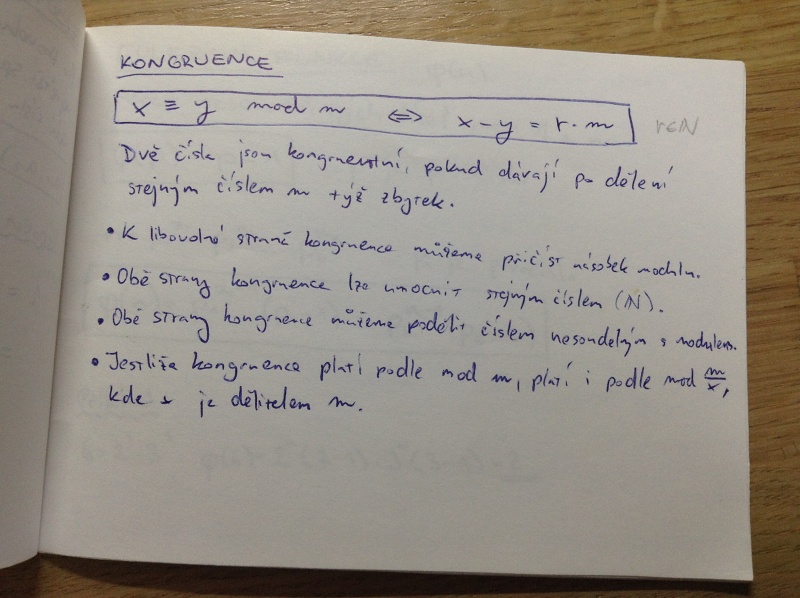 KONGRUENCE
x ≡ y mod m ⇔ x - y = r · m r∈N
Dvě čísla jsou kongruentní, pokud dávají po dělení
stejným číslem m týž zbytek.
• K libovolné straně kongruence můžeme přičíst násobek modulu.
• Obě strany kongruence lze umocnit stejným číslem (N).
• Obě strany kongruence můžeme podělit číslem nesoudělným s modulem.
• Jestliže kongruence platí podle mod m, platí i podle mod m/x,
kde x je dělitelem m.